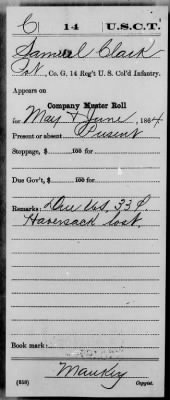 C | 14 | U.S.C.T.
Samuel Clark
Pvt., Co. G, 14 Reg't U. S. Col'd Infantry.
Appears on
Company Muster Roll
for May & June, 1864
Present or absent Present
Stoppage, $ 100 for
Due Gov't, $ 100 for
Remarks: Due U.S. 33¢.
Haversack lost.
Book mark:
Mankey
(358) Copyist.